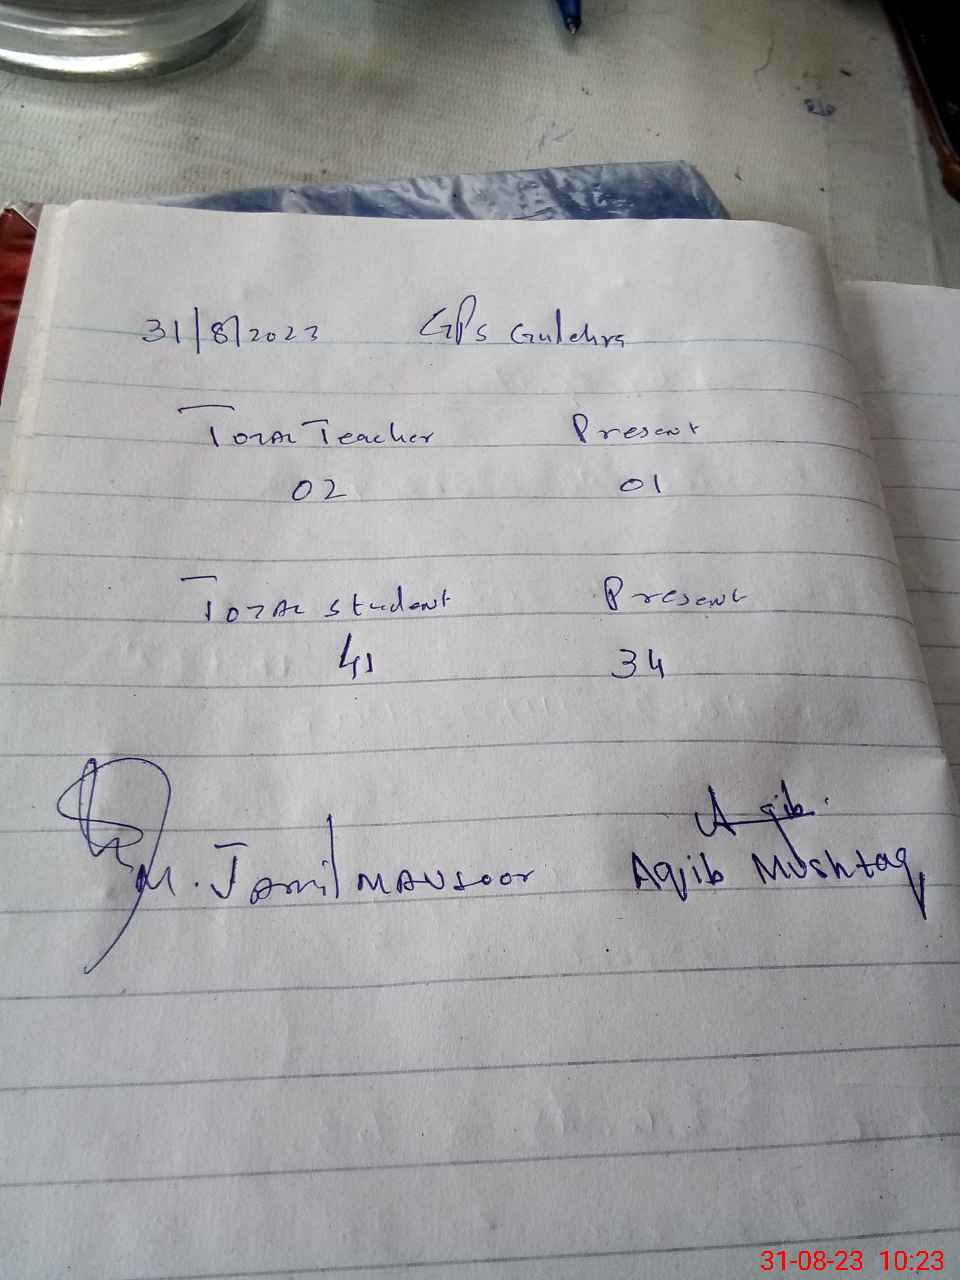 31/8/2023 GPS Gulehra
Total Teacher Present
02 01
Total Student Present
41 34
Aqib.
M. Jamil Mansoor Aqib Mushtaq
31-08-23 10:23